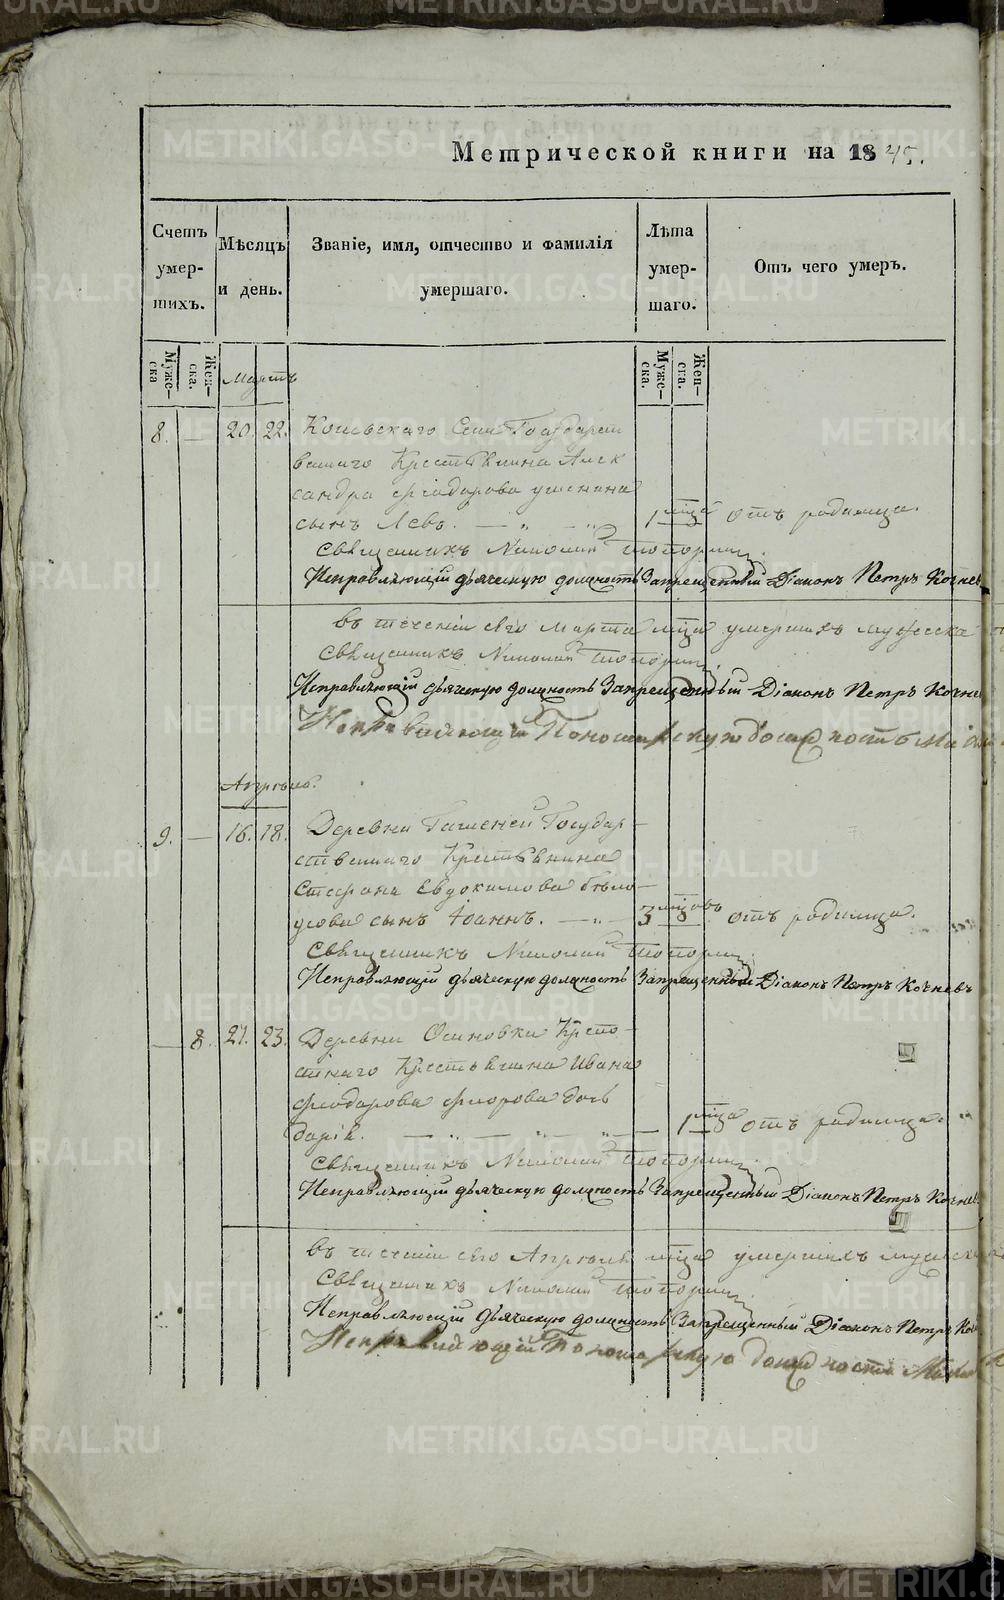 Метрической книги на 1845.
Счетъ умер- шихъ.
Мѣсяцъ и день.
Званіе, имя, отчество и фамилія умершаго.
Лѣта умер- шаго.
Отъ чего умеръ.
Муже- ска
Жен- ска.
Муже- ска.
Жен- ска.
Мартъ
8. — 20. 22. Государст
веннаго Крестьянина Алек
сандра Ѳеодорова
сынъ Левъ. 1 мца отъ родимца.
Священникъ Николай Топорковъ.
Исправляющій дьяческую должность Запрещенный Діаконъ Петръ Кочнев
въ теченіи сего Марта мца умершихъ мужеска
Священникъ Николай
Исправляющій дьяческую должность Запрещенный Діаконъ Петръ Кочне
Исправляющій Пономарскую должность
Апрѣль.
9. — 16. 18. Деревни Государ-
ственнаго Крестьянина
Стефана Евдокимова Бѣло-
усова сынъ Іоаннъ. 3 мцовъ отъ родимца.
Священникъ Николай
Исправляющій дьяческую должность Запрещенный Діаконъ Петръ Кочневъ
— 8. 21. 23. Деревни Осиновки Крепо-
стнаго Крестьянина Ивана
Ѳеодорова дочь
Дарія. 1 мца отъ родимца.
Священникъ Николай
Исправляющій дьяческую должность Запрещенный Діаконъ Петръ Кочнев
въ теченіи сего Апрѣля мца умершихъ мужеска
Священникъ Николай
Исправляющій дьяческую должность Запрещенный Діаконъ Петръ Коч
Исправляющій Пономарскую должность
METRIKI.GASO-URAL.RU